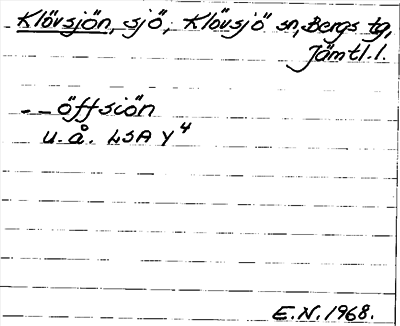 Klövsjön, sjö, Klövsjö sn, Bergs tg,
Jämtl.l.
-- öffsiön
u.å. LSA Y4
E.N.1968.